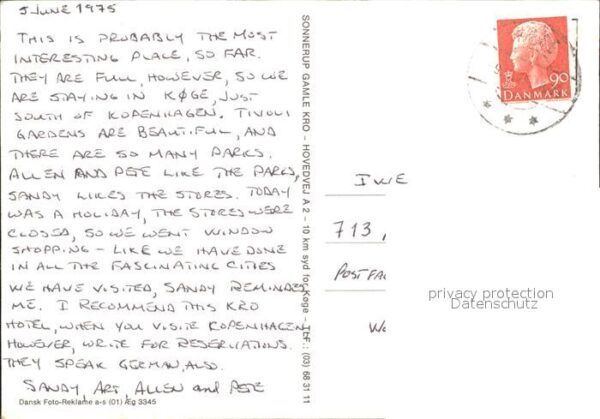 5 JUNE 1975
THIS IS PROBABLY THE MOST
INTERESTING PLACE, SO FAR.
THEY ARE FULL, HOWEVER, SO WE
ARE STAYING IN KØGE, JUST
SOUTH OF KOPENHAGEN. TIVOLI
GARDENS ARE BEAUTIFUL, AND
THERE ARE SO MANY PARKS.
ALLEN AND PETE LIKE THE PARKS,
SANDY LIKES THE STORES. TODAY
WAS A HOLIDAY, THE STORES WERE
CLOSED, SO WE WENT WINDOW
SHOPPING - LIKE WE HAVE DONE
IN ALL THE FASCINATING CITIES
WE HAVE VISITED, SANDY REMINDS
ME. I RECOMMEND THIS KRO
HOTEL, WHEN YOU VISIT COPENHAGEN
HOWEVER, WRITE FOR RESERVATIONS.
THEY SPEAK GERMAN, ALSO.
SANDY, ART, ALLEN and PETE
Dansk Foto-Reklame a-s (01) Æg 3345
SONNERUP GAMLE KRO - HOVEDVEJ A 2 - 10 km syd for Køge - Tlf.: (03) 68 31 11
90
DANMARK
713,
POSTFAC
privacy protection
Datenschutz